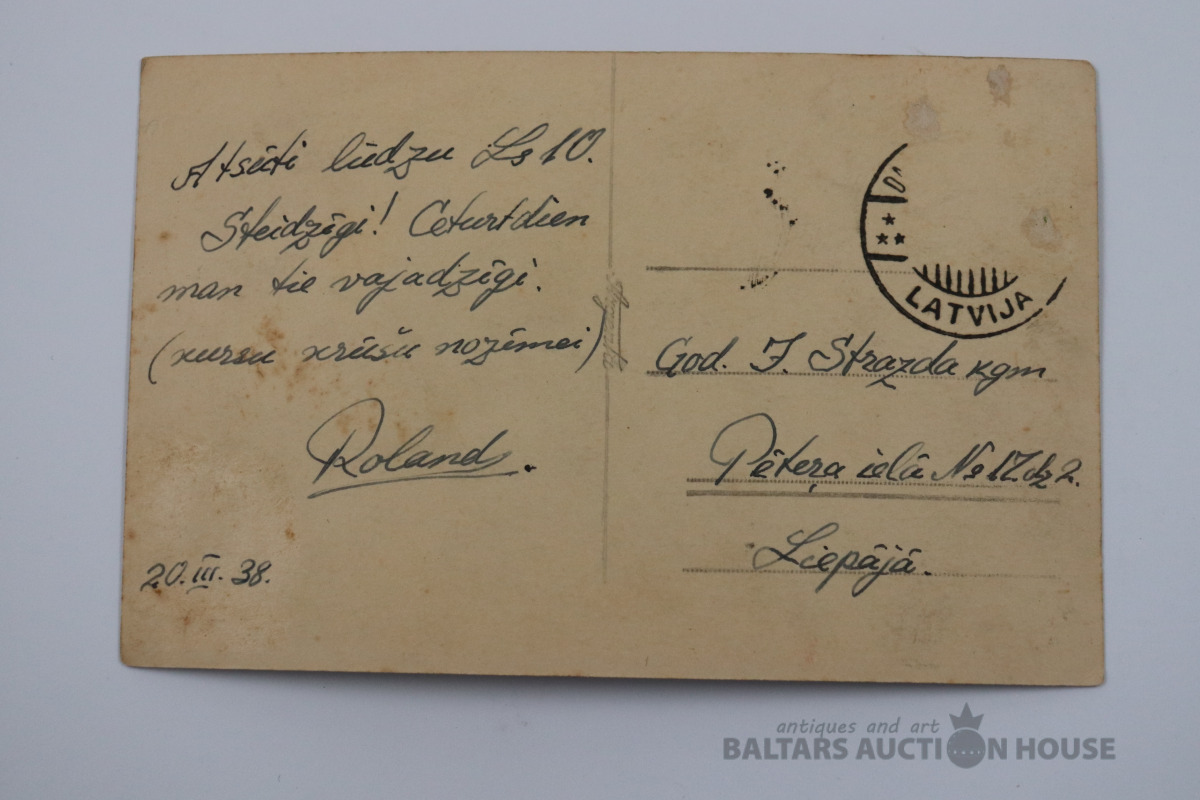 Atsūti lūdzu Ls 10.
Steidzīgi! Ceturtdien
man tie vajadzīgi.
(kursu krūšu nozīmei)
Roland.
20.III.38.
LATVIJA
God. J. Strazda kgm
Pētera ielā No 17. dz 2.
Liepājā.
antiques and art
BALTARS AUCTION HOUSE